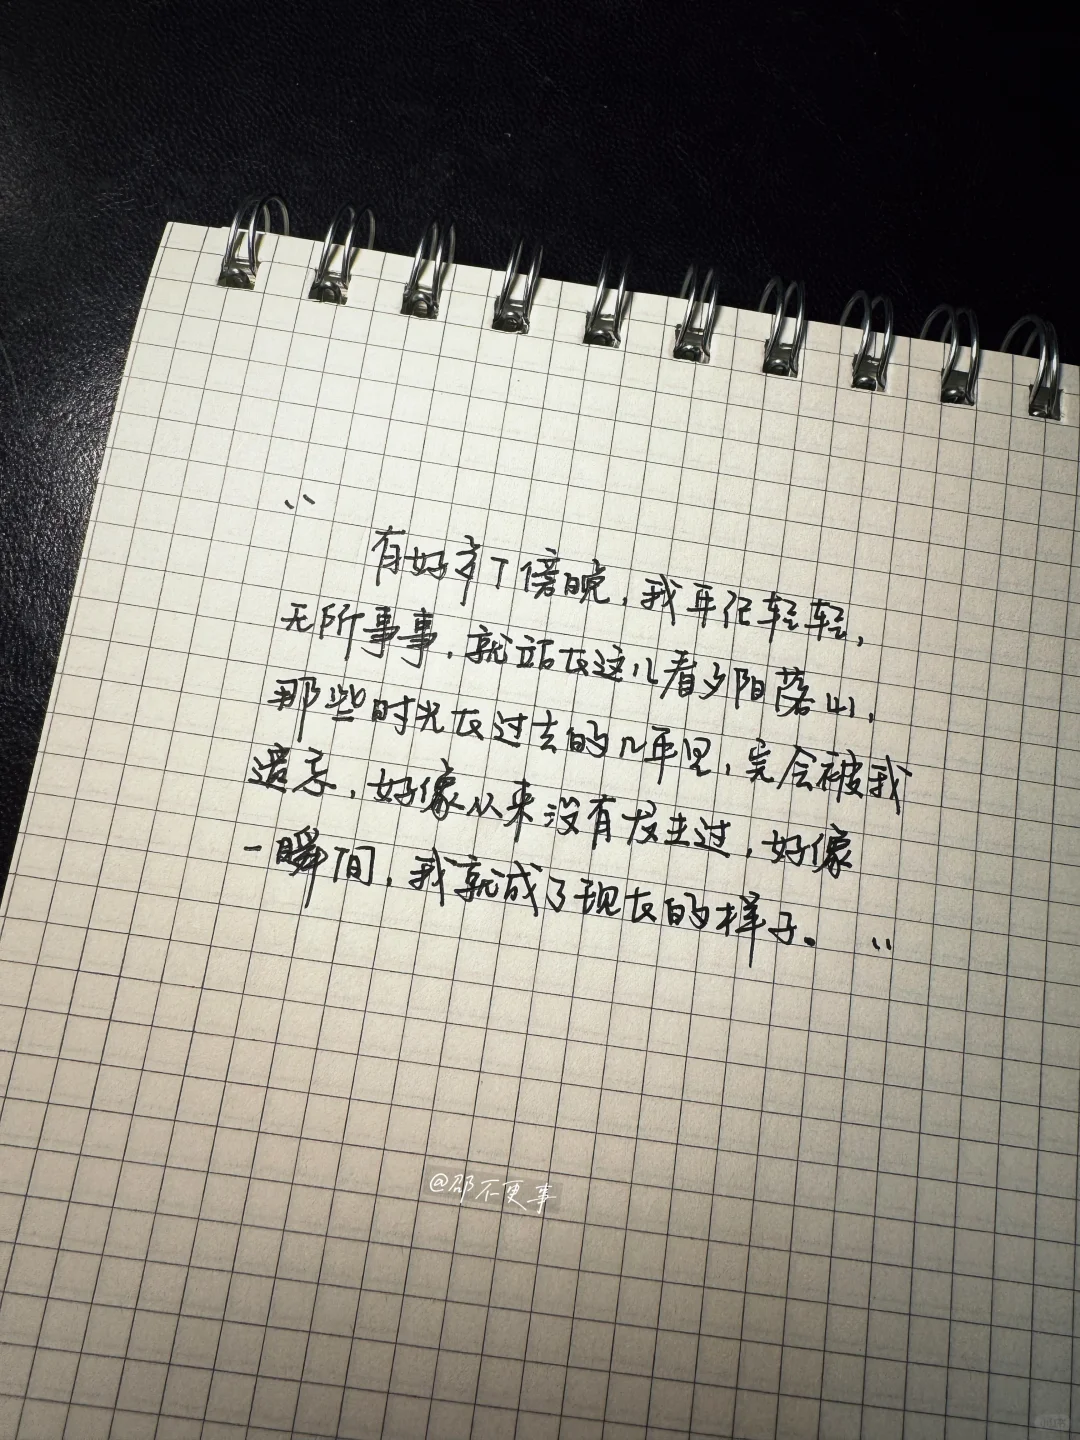 “
有好多个傍晚，我年纪轻轻，
无所事事，就站在这儿看夕阳落山，
那些时光在过去的几年里，竟会被我
遗忘，好像从来没有发生过，好像
一瞬间，我就成了现在的样子。”
@邵不更事
小红书